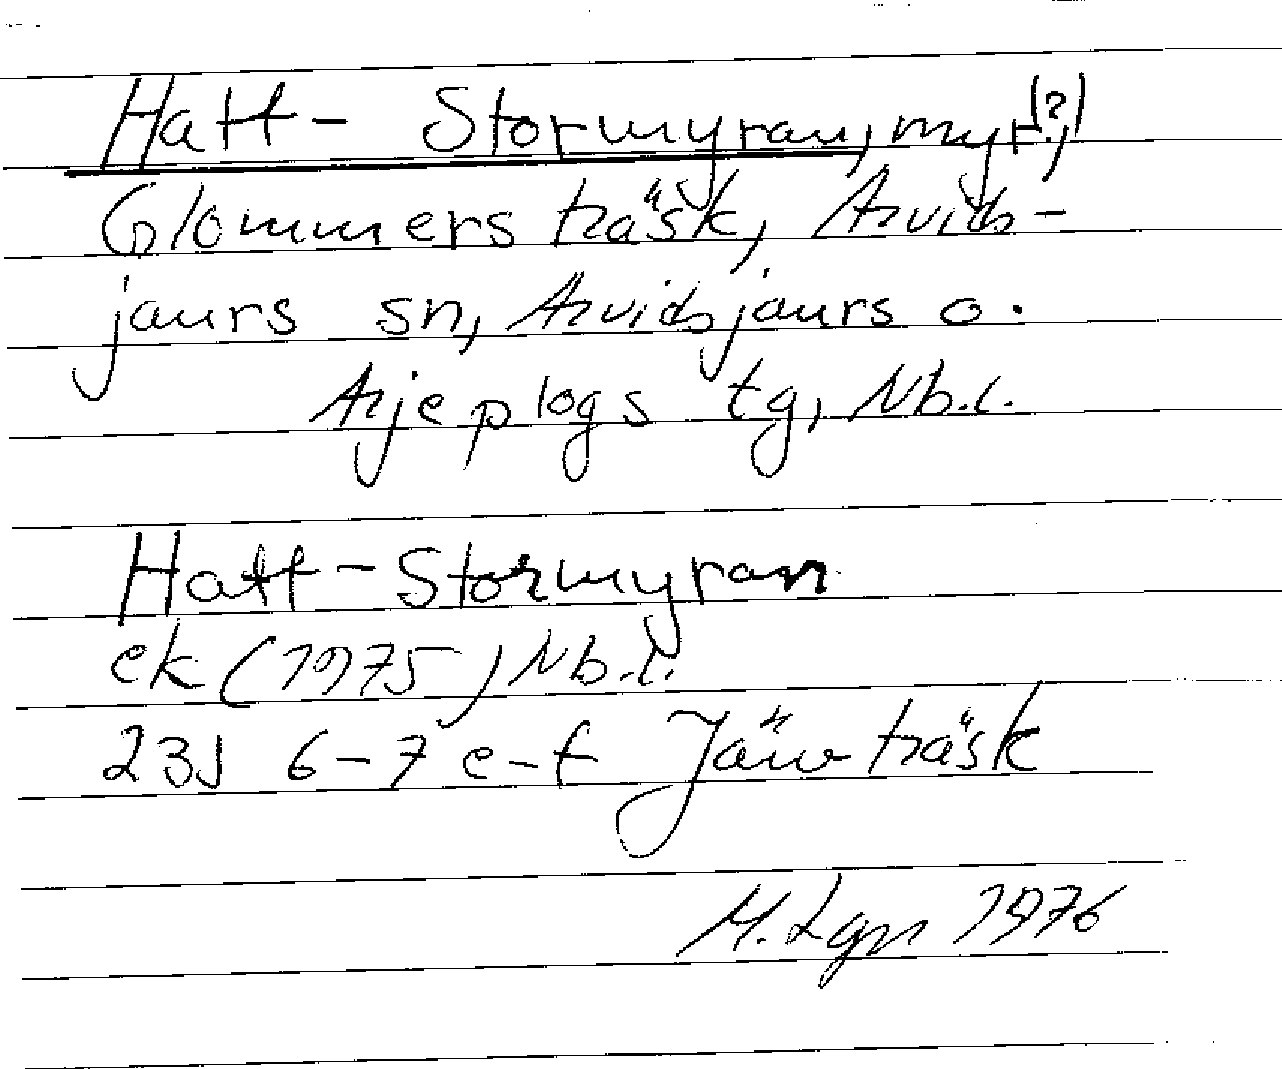 Hatt- Stormyran, myr(?),
Glommersträsk, Arvids-
jaurs sn, Arvidsjaurs o.
Arjeplogs tg, Nb.l.
Hatt-Stormyran
ek (1975) Nb.l.
23J 6-7 e-f Järvträsk
M. Lgn 1976